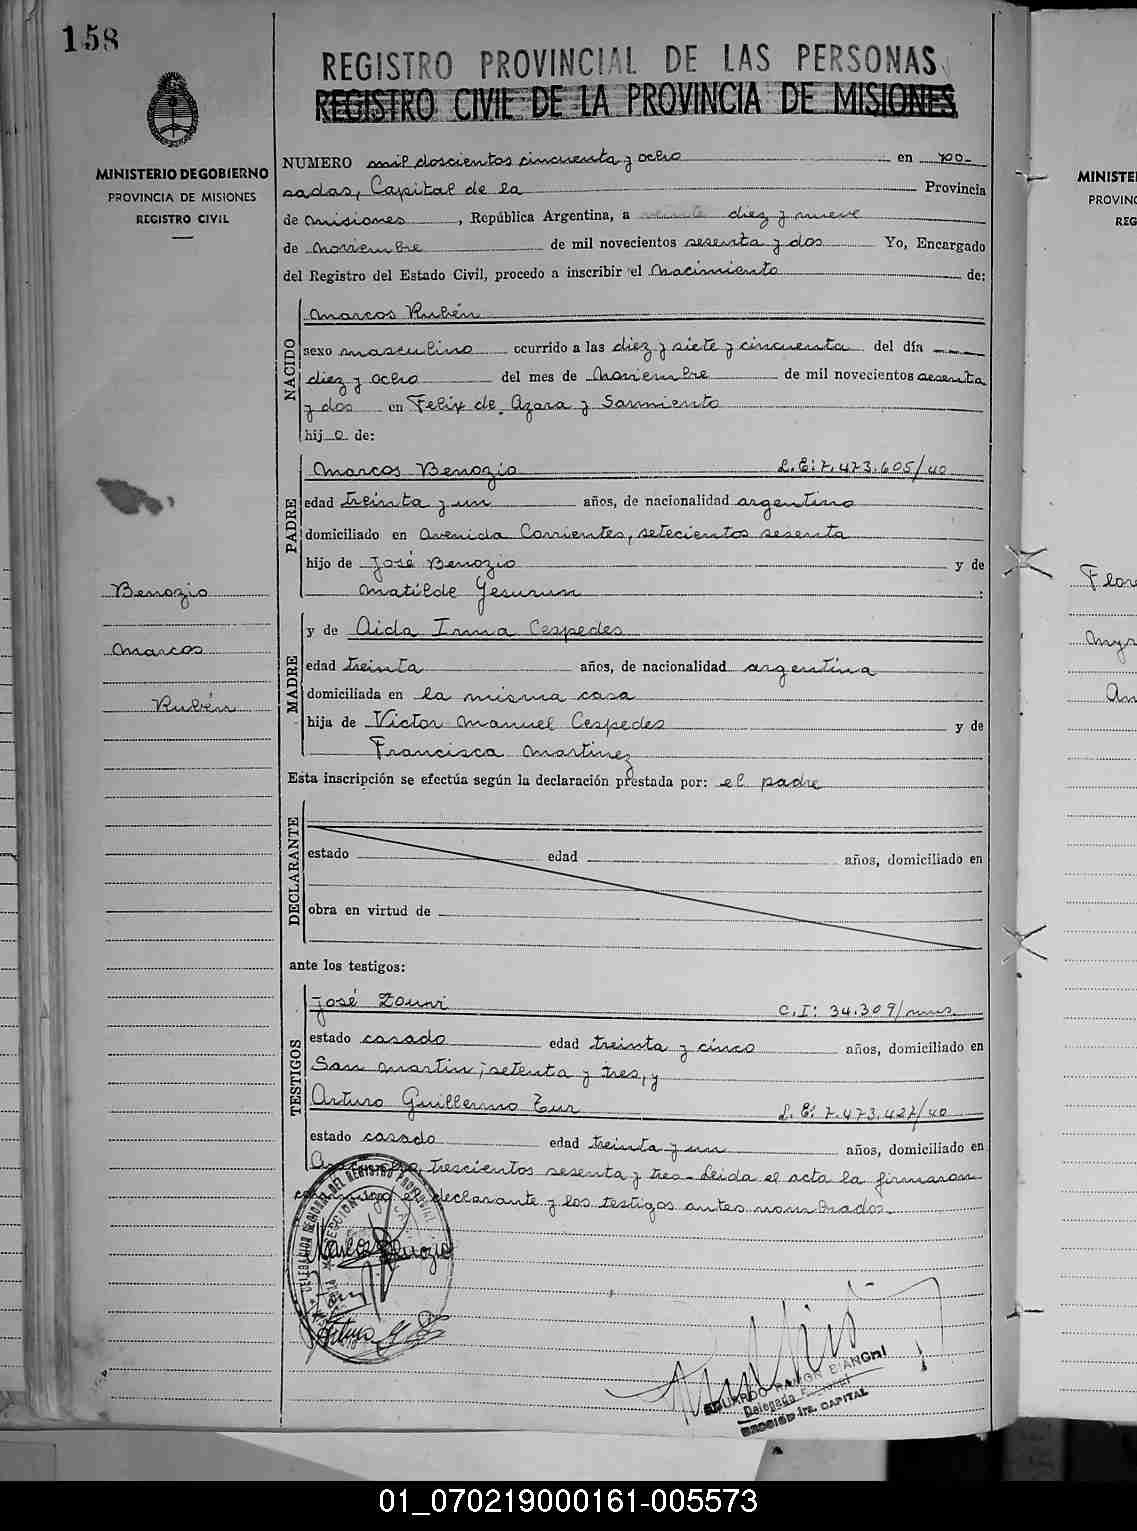 158
REGISTRO PROVINCIAL DE LAS PERSONAS
REGISTRO CIVIL DE LA PROVINCIA DE MISIONES
MINISTERIO DE GOBIERNO
PROVINCIA DE MISIONES
REGISTRO CIVIL
NUMERO mil doscientos cincuenta y ocho en Po-
sadas, Capital de la Provincia
de Misiones, República Argentina, a diez y nueve
de Noviembre de mil novecientos sesenta y dos Yo, Encargado
del Registro del Estado Civil, procedo a inscribir el Nacimiento de:
NACIDO
Marcos Rubén
sexo masculino ocurrido a las diez y siete y cincuenta del día
diez y ocho del mes de Noviembre de mil novecientos sesenta
y dos en Felix de Azara y Sarmiento
hijo de:
PADRE
Marcos Benozio L.E: 7.473.605/40
edad treinta y un años, de nacionalidad argentino
domiciliado en Avenida Corrientes, setecientos sesenta
hijo de José Benozio y de
Matilde Yesurun
Benozio
Marcos
Rubén
MADRE
y de Aida Irma Cespedes
edad treinta años, de nacionalidad argentina
domiciliada en la misma casa
hija de Victor Manuel Cespedes y de
Francisca Martinez
Esta inscripción se efectúa según la declaración prestada por: el padre
DECLARANTE
estado edad años, domiciliado en
obra en virtud de
ante los testigos:
TESTIGOS
José C.I: 34.309/mns.
estado casado edad treinta y cinco años, domiciliado en
San Martin, setenta y tres, y
Arturo Guillermo Tur L.E: 7.473.427/40
estado casado edad treinta y un años, domiciliado en
trescientos sesenta y tres - Leida el acta la firmaron
conmigo el declarante y los testigos antes nombrados.
Marcos Benozio
Arturo G.
DELEGACION REGISTRO PROVINCIAL
EDUARDO RAMON BIANGHI
Delegado
SECCION 1ra. CAPITAL
MINISTE
PROVINC
REG
Flore
An
01_070219000161-005573